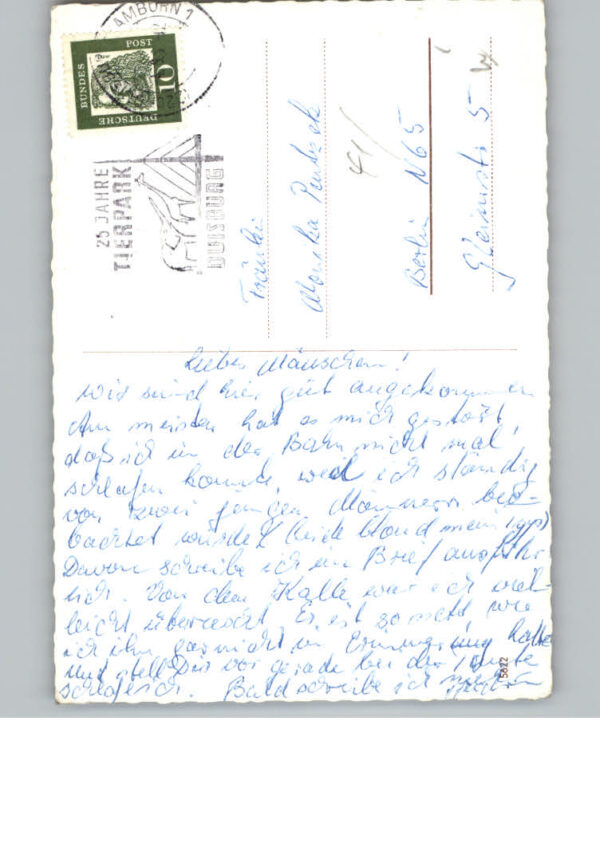 HAMBORN 1
DEUTSCHE BUNDESPOST
10
25 JAHRE
TIERPARK
DUISBURG
Fräulein
Monika
41/
Berlin N65
5
Liebes Mäuschen!
Wir sind hier gut angekommen
Am meisten hat es mich gestört,
daß ich in der Bahn nicht mal
schlafen konnte, weil ich ständig
von zwei jungen Männern beo-
bachtet wurde (beide blond mein Typ)
Davon schreibe ich im Brief ausführ
lich. Von dem Kalle war ich viel-
leicht überrascht. Er ist so nett wie
ich ihn gar nicht in Erinnerung hatte
und stell Dir vor gerade bei der Tante
schlafe ich. Bald schreibe ich mehr
5622